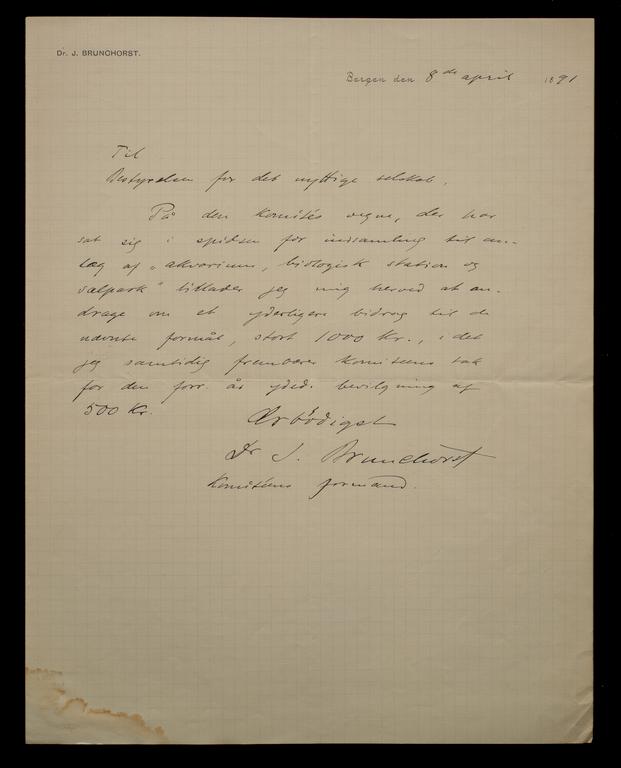 Dr. J. BRUNCHORST.
Bergen den 8de april 1891
Til
Bestyrelsen for det nyttige selskab.
På den komités vegne, der har
sat sig i spidsen for indsamling til an-
læg af "akvarium, biologisk station og
sælpark" tillader jeg mig herved at an-
drage om et yderligere bidrag til de
nævnte formål, stort 1000 Kr., i det
jeg samtidig frembærer komitéens tak
for den forr. år yded. bevilgning af
500 Kr.
Ærbödigst
Dr J. Brunchorst
Komitéens formand.